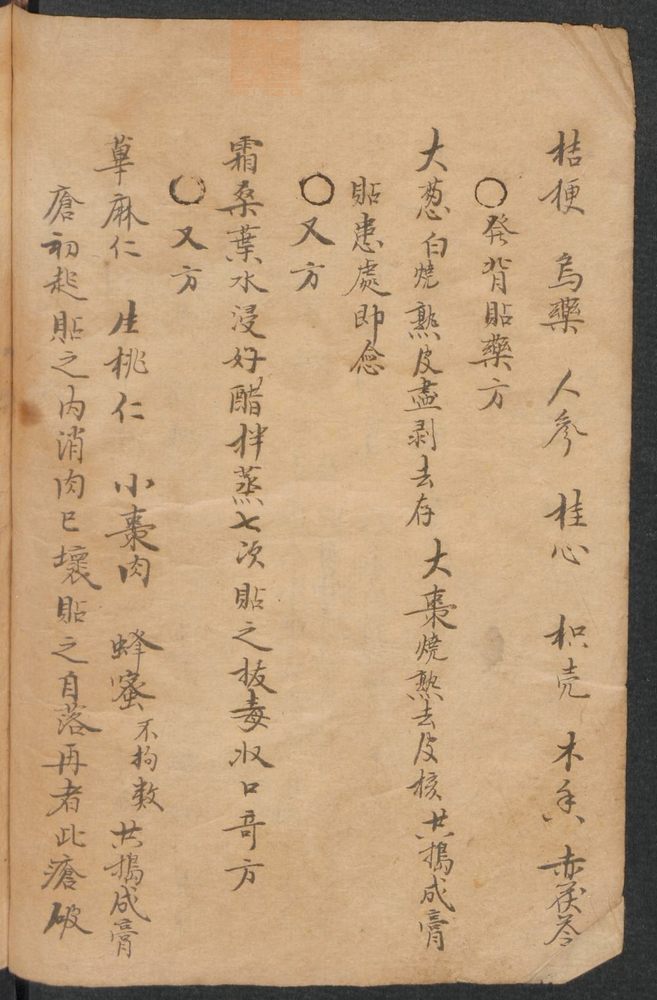 桔梗 烏藥 人參 桂心 枳壳 木香 赤茯苓
〇發背貼藥方
大葱白燒熟皮盡剥去存 大棗燒熟去皮核共搗成膏
貼患處即愈
〇又方
霜桑葉水浸好醋拌蒸七次貼之拔毒收口奇方
〇又方
萆麻仁 生桃仁 小棗肉 蜂蜜不拘数 共搗成膏
瘡初起貼之内消肉已壞貼之自落再者此瘡破